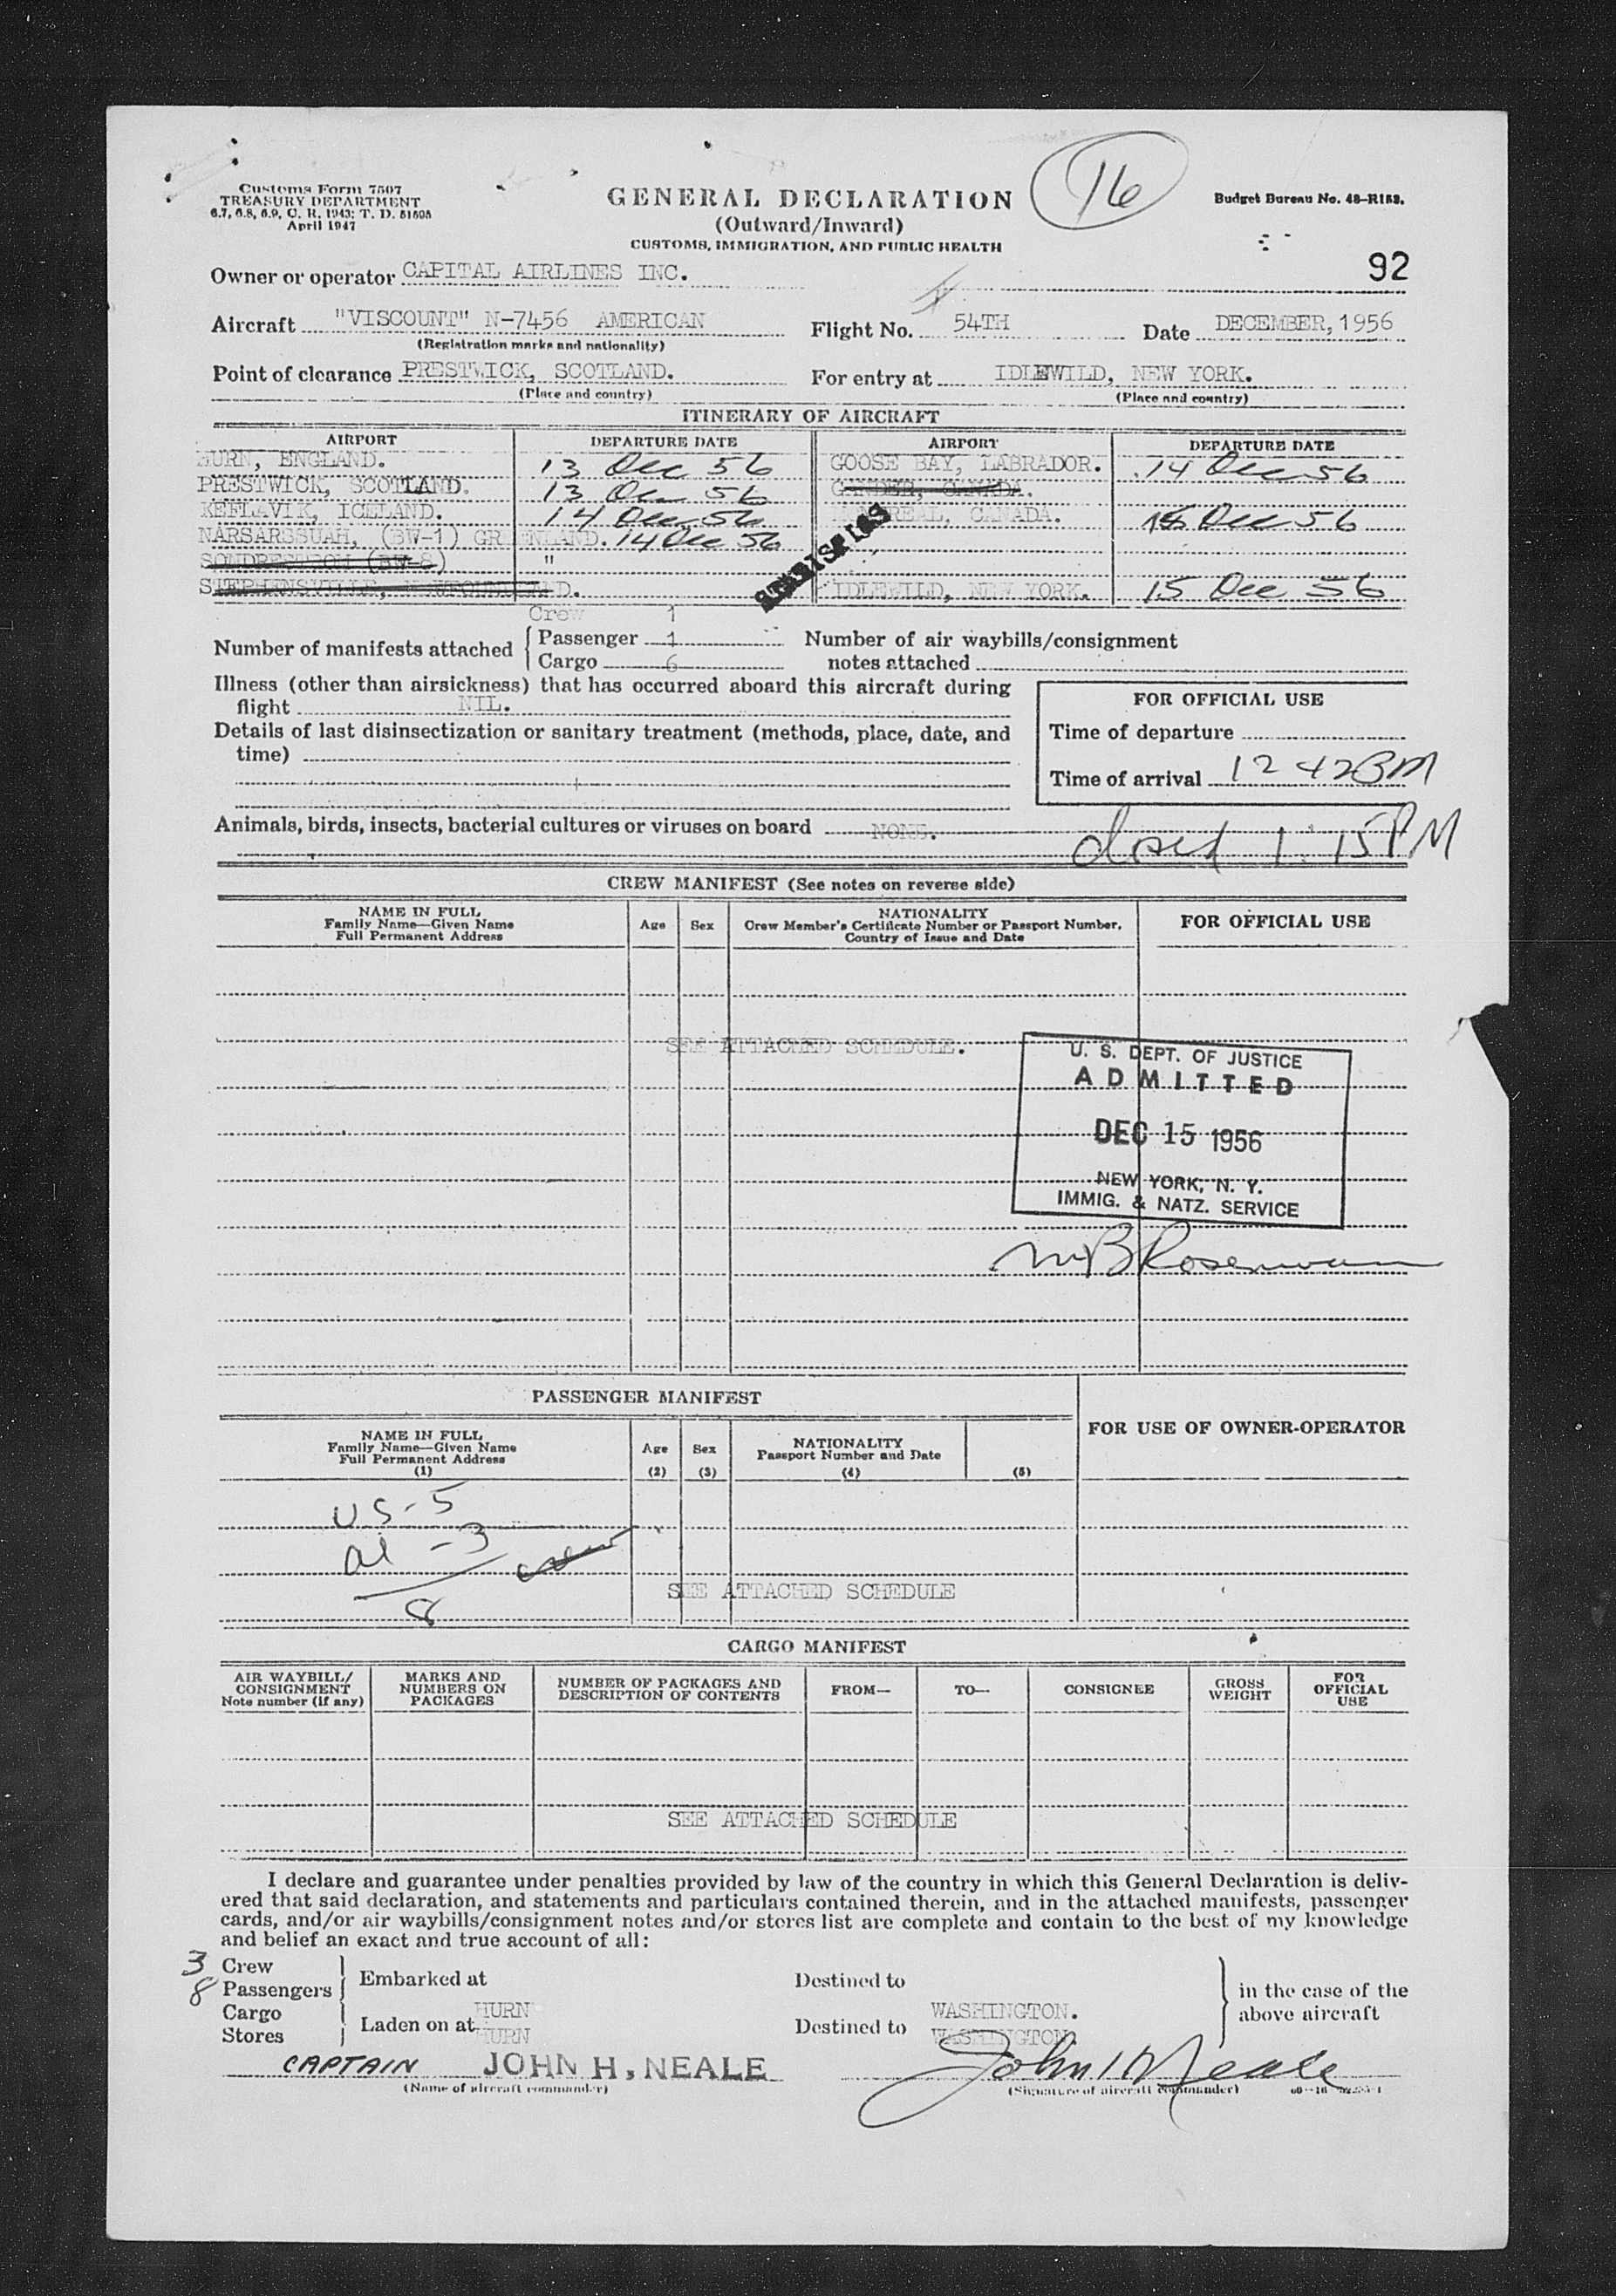 16
Customs Form 7507
TREASURY DEPARTMENT
6.7, 6.8, 6.9, C. R. 1943; T. D. 51505
April 1947
GENERAL DECLARATION
(Outward/Inward)
CUSTOMS, IMMIGRATION, AND PUBLIC HEALTH
Budget Bureau No. 48-R158.
92
Owner or operator CAPITAL AIRLINES INC.
Aircraft "VISCOUNT" N-7456 AMERICAN Flight No. 54TH Date DECEMBER, 1956
(Registration marks and nationality)
Point of clearance PRESTWICK, SCOTLAND. For entry at IDLEWILD, NEW YORK.
(Place and country) (Place and country)
ITINERARY OF AIRCRAFT
AIRPORT DEPARTURE DATE AIRPORT DEPARTURE DATE
HURN, ENGLAND. 13 Dec 56 GOOSE BAY, LABRADOR. 14 Dec 56
PRESTWICK, SCOTLAND. 13 Dec 56 GANDER, CANADA.
KEFLAVIK, ICELAND. 14 Dec 56 MONTREAL, CANADA. 15 Dec 56
NARSARSSUAH, (BW-1) GREENLAND. 14 Dec 56
SONDRESTROM (BW-8) "
STEPHENSVILLE, NEWFOUNDLAND. IDLEWILD, NEW YORK. 15 Dec 56
STATISTICS
Crew 1
Number of manifests attached { Passenger 1
Cargo 6
Number of air waybills/consignment
notes attached
Illness (other than airsickness) that has occurred aboard this aircraft during
flight NIL.
Details of last disinsectization or sanitary treatment (methods, place, date, and
time)
FOR OFFICIAL USE
Time of departure
Time of arrival 12 42 PM
Animals, birds, insects, bacterial cultures or viruses on board NONE.
closed 1:15 PM
CREW MANIFEST (See notes on reverse side)
NAME IN FULL
Family Name—Given Name
Full Permanent Address
Age
Sex
NATIONALITY
Crew Member's Certificate Number or Passport Number,
Country of Issue and Date
FOR OFFICIAL USE
SEE ATTACHED SCHEDULE.
U. S. DEPT. OF JUSTICE
ADMITTED
DEC 15 1956
NEW YORK, N. Y.
IMMIG. & NATZ. SERVICE
PASSENGER MANIFEST
FOR USE OF OWNER-OPERATOR
NAME IN FULL
Family Name—Given Name
Full Permanent Address
(1)
Age
(2)
Sex
(3)
NATIONALITY
Passport Number and Date
(4)
(5)
US - 5
al - 3
8
SEE ATTACHED SCHEDULE
CARGO MANIFEST
AIR WAYBILL/
CONSIGNMENT
Note number (if any)
MARKS AND
NUMBERS ON
PACKAGES
NUMBER OF PACKAGES AND
DESCRIPTION OF CONTENTS
FROM—
TO—
CONSIGNEE
GROSS
WEIGHT
FOR
OFFICIAL
USE
SEE ATTACHED SCHEDULE
I declare and guarantee under penalties provided by law of the country in which this General Declaration is deliv-
ered that said declaration, and statements and particulars contained therein, and in the attached manifests, passenger
cards, and/or air waybills/consignment notes and/or stores list are complete and contain to the best of my knowledge
and belief an exact and true account of all:
3 Crew
8 Passengers
Embarked at Destined to
Cargo
Stores
Laden on at HURN Destined to WASHINGTON.
HURN WASHINGTON.
in the case of the
above aircraft
CAPTAIN JOHN H. NEALE John H Neale
(Name of aircraft commander) (Signature of aircraft commander)